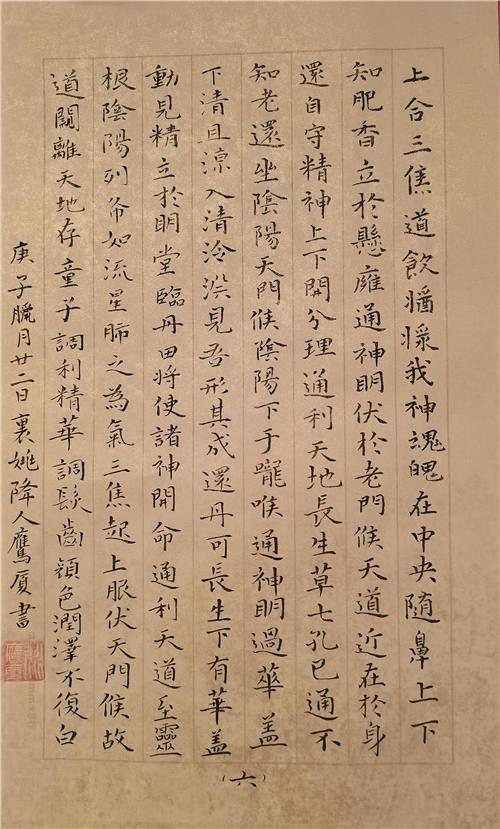 上合三焦道飲醬漿我神魂魄在中央隨鼻上下
知肥香立於懸廱通神明伏於老門候天道近在於身
還自守精神上下開分理通利天地長生草七孔已通不
知老還坐陰陽天門候陰陽下于嚨喉通神明過華盖
下清且涼入清泠淵見吾形其成還丹可長生下有華盖
動見精立於明堂臨丹田將使諸神開命通利天道至靈
根陰陽列布如流星肺之為氣三焦起上服伏天門候故
道闚離天地存童子調利精華調髮齒顏色潤澤不復白
庚子臘月廿二日裏姚降人鷹厦書
（六）